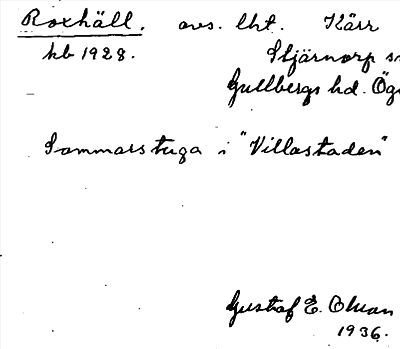 Roxhäll. avs. lht. Kärr
kb 1928. Stjärnorp sn
Gullbergs hd. Ög
Sommarstuga i "Villastaden"
Gustaf E. Olson
1936.